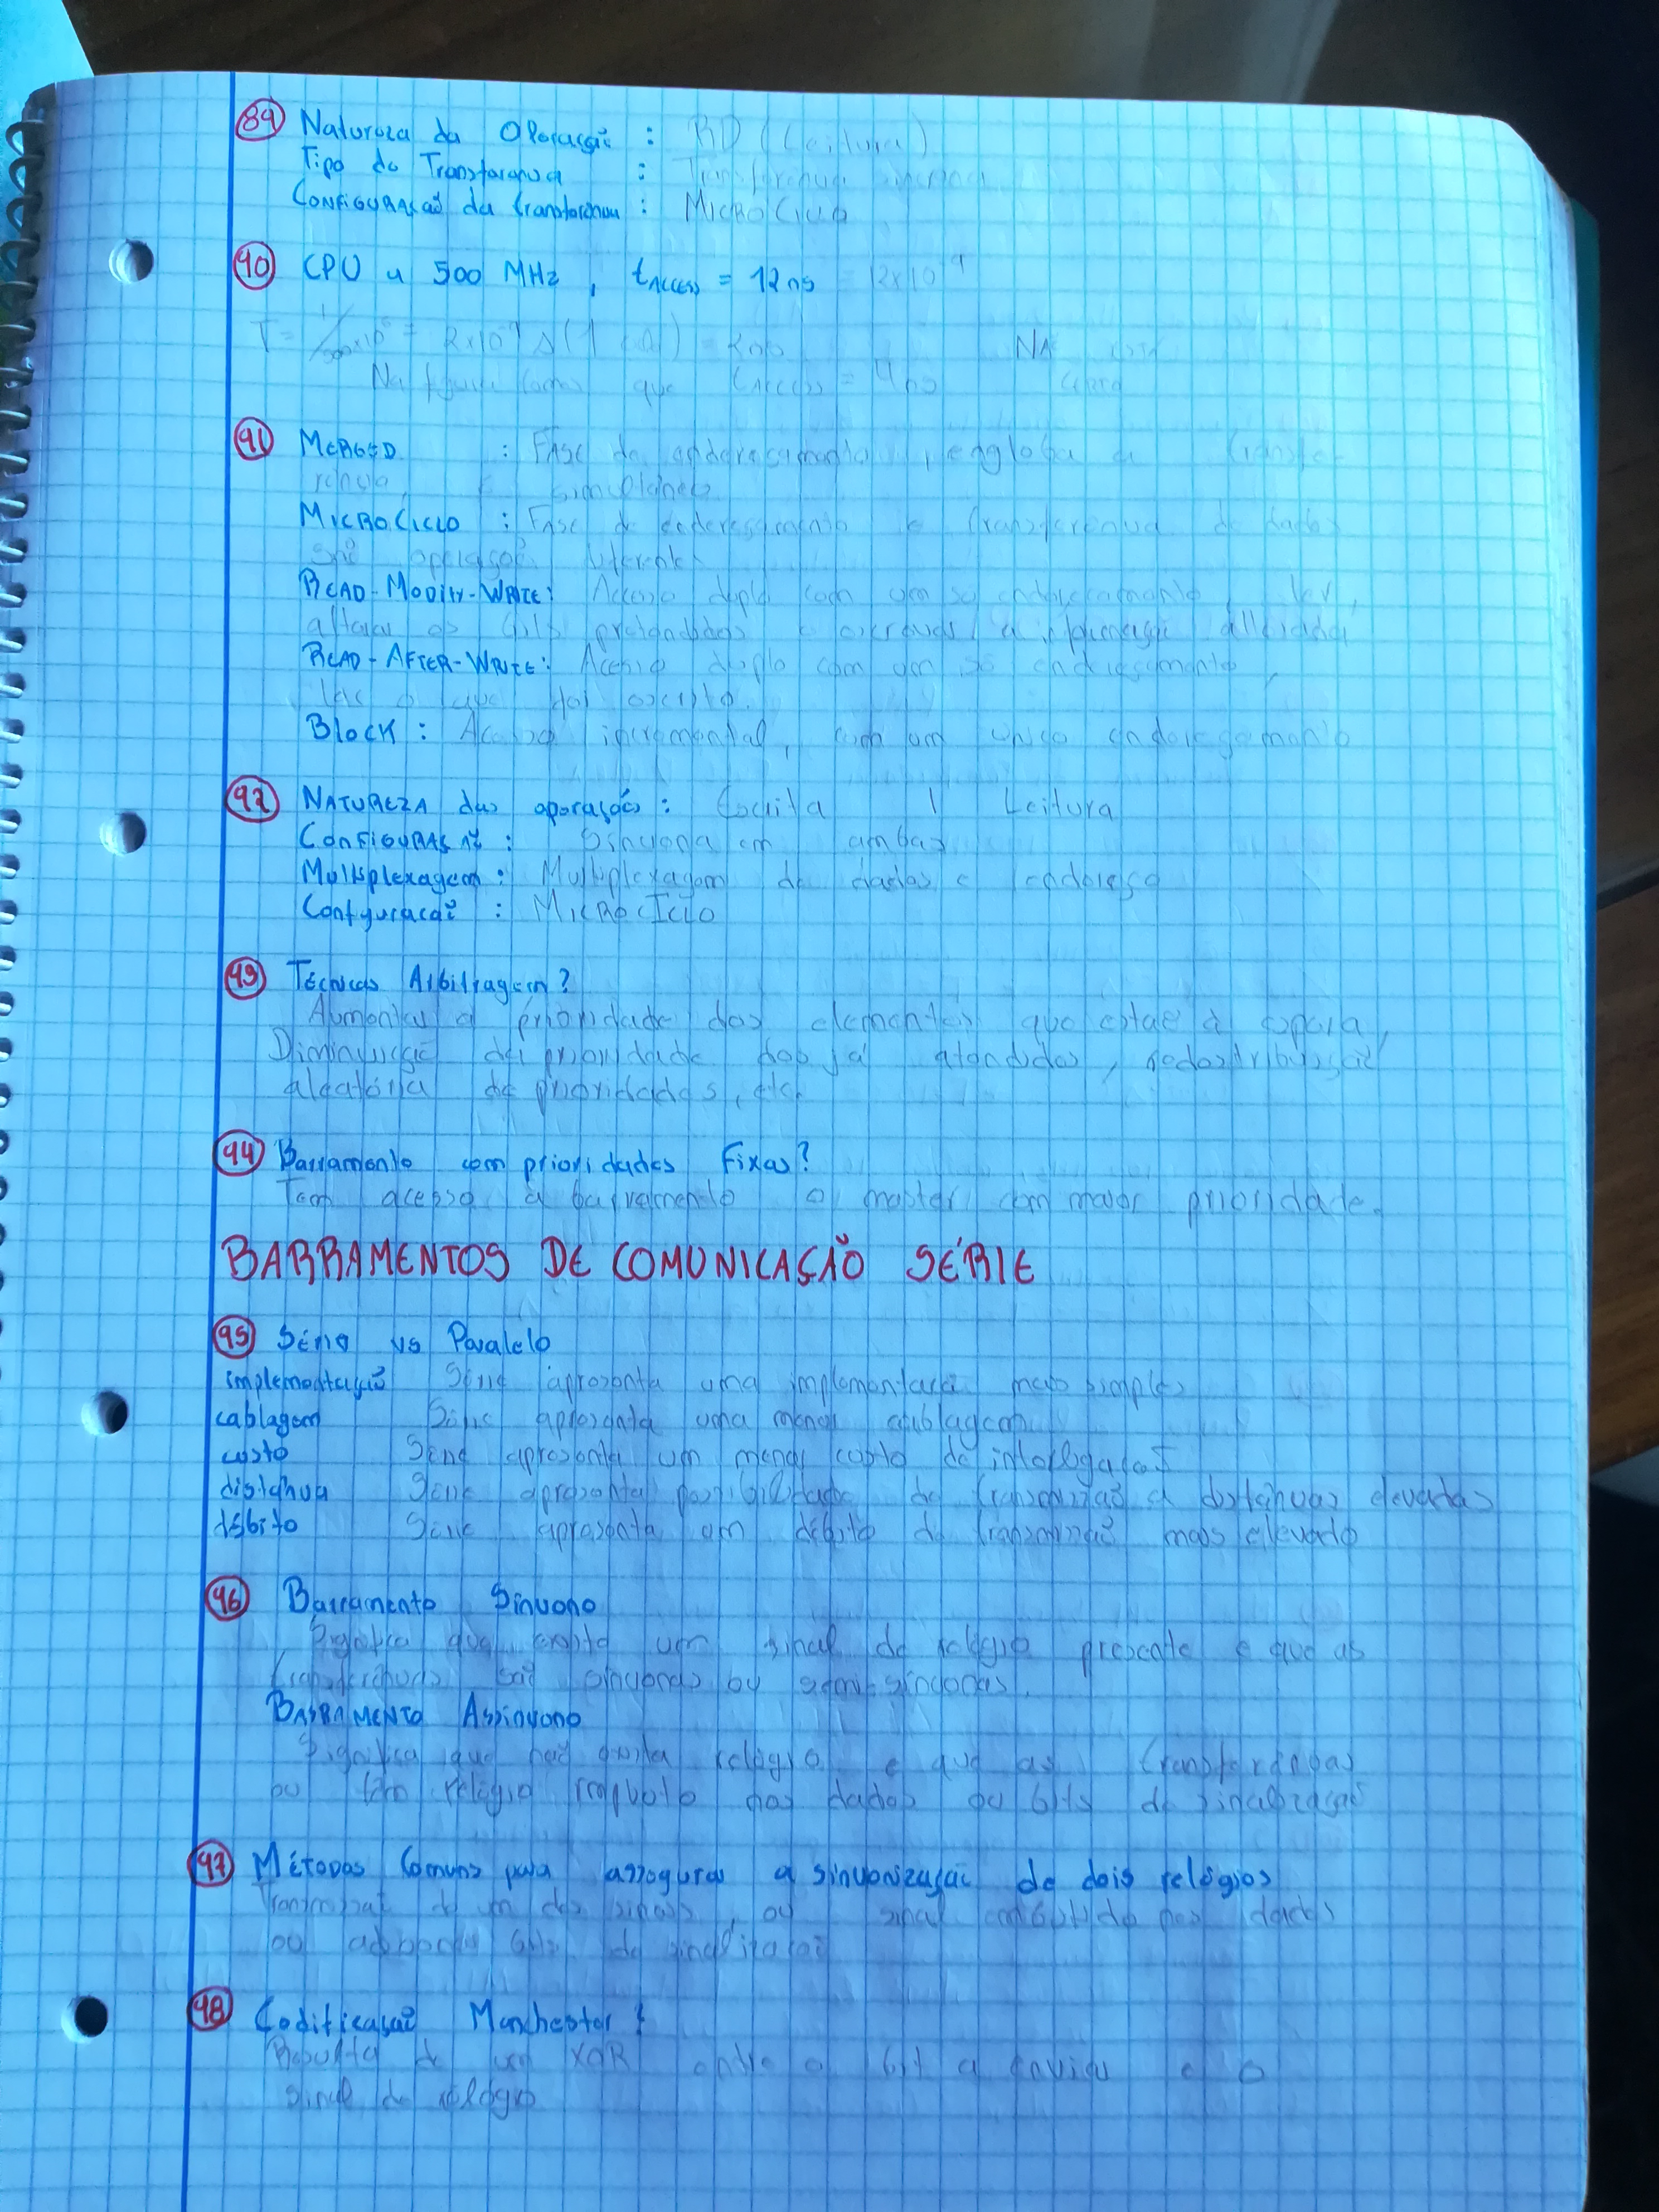 89 Natureza da Operação : RD (Leitura)
Tipo de Transferência : Transferência síncrona
Configuração da transferência : MicroCiclo
90 CPU a 500 MHz , tACCESS = 12ns = 12x10^-9
T =
Na que tACCESS = 4ns
91 MERGED : FASE de endereçamento , engloba a transfe-
rência, simultânea
MICROCICLO : FASE de endereçamento e transferência de dados
são operações diferentes
READ-MODIFY-WRITE: Acesso duplo com um só endereçamento , ler,
alterar os bits pretendidos e escrever a informação alterada
READ-AFTER-WRITE: Acesso duplo com um só endereçamento ,
ler o que foi escrito.
Block : Acesso incremental, com um único endereçamento
92 NATUREZA das operações : Escrita | Leitura
Configuração : Síncrona em ambas
Multiplexagem : Multiplexagem de dados e endereço
Configuração : MICROCICLO
93 Técnicas Arbitragem ?
Aumentar a prioridade dos elementos que estão à espera,
Diminuição da prioridade dos já atendidos, redistribuição
aleatória de prioridades, etc.
94 Barramento com prioridades Fixas?
Tem acesso à barramento o master com maior prioridade.
BARRAMENTOS DE COMUNICAÇÃO SÉRIE
95 Série vs Paralelo
implementação Série apresenta uma implementação mais simples
cablagem Série apresenta uma menor cablagem
custo Série apresenta um menor custo de interligação
distância Série apresenta possibilidade de transmissão a distâncias elevadas
débito Série apresenta um débito de transmissão mais elevado
96 Barramento Síncrono
Significa que existe um sinal de relógio presente e que as
transferências são síncronas ou semi-síncronas.
BARRAMENTO Assíncrono
Significa que não exista relógio e que as transferências
ou têm relógio implícito nos dados ou bits de sinalização
97 Métodos Comuns para assegurar a sincronização de dois relógios
Transmissão de um dos sinais , ou sinal embutido nos dados
ou adiciona bits de sinalização
98 Codificação Manchester :
Resulta de um XOR entre o bit a enviar e o
sinal de relógio